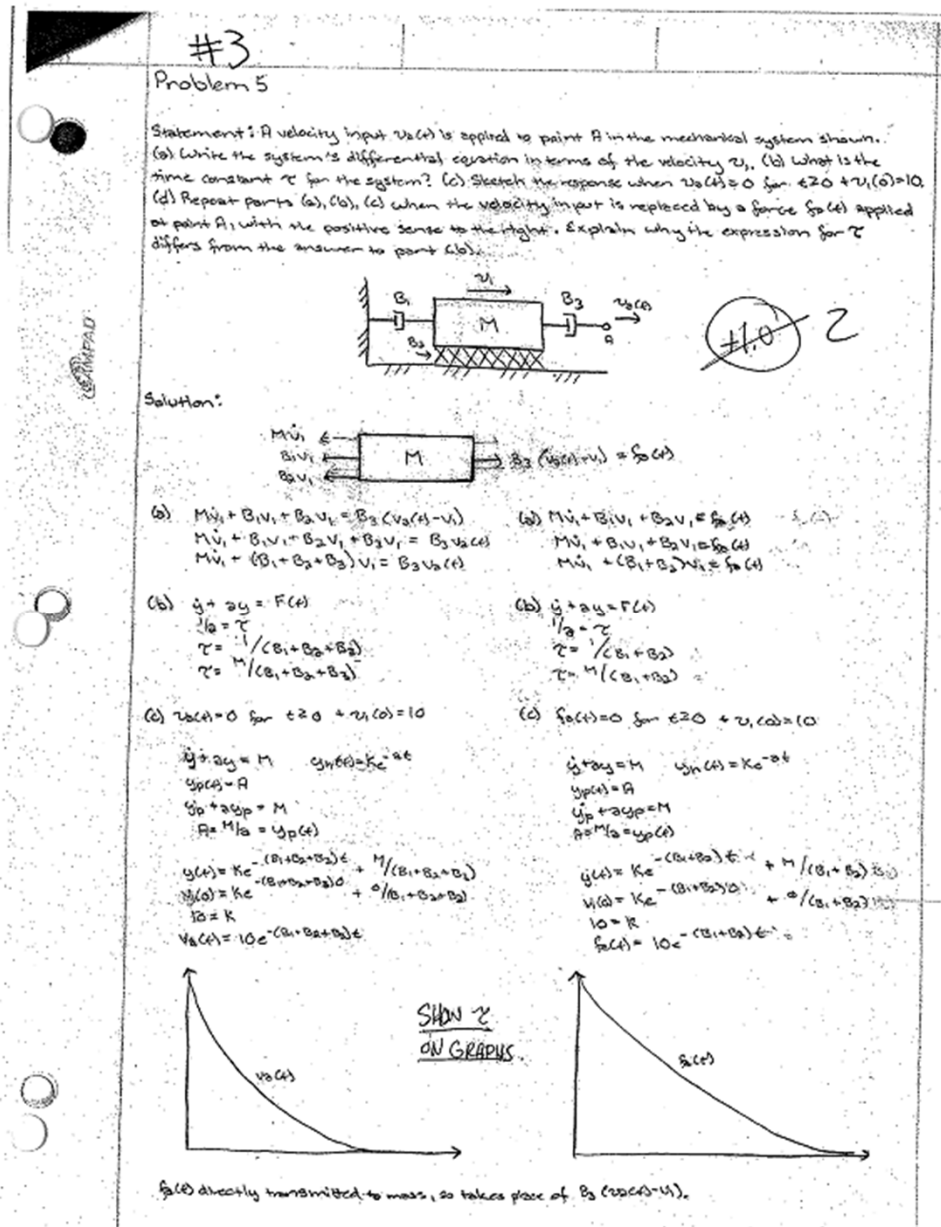 #3
Problem 5
Statement: A velocity input v₂(t) is applied to point A in the mechanical system shown.
(a) Write the system's differential equation in terms of the velocity v₁. (b) What is the
time constant τ for the system? (c) Sketch the response when v₂(t)=0 for t≥0 + v₁(0)=10.
(d) Repeat parts (a), (b), (c) when the velocity input is replaced by a force fa(t) applied
at point A, with the positive sense to the right. Explain why the expression for τ
differs from the answer to part (b).
v₁
B₁
M
B₃
v₂(t)
A
B₂
+1.0
2
AMPAD
Solution:
Mv̇₁
B₁v₁
B₂v₁
M
B₃(v₂(t)-v₁) = fa(t)
(a) Mv̇₁ + B₁v₁ + B₂v₁ = B₃(v₂(t)-v₁)
Mv̇₁ + B₁v₁ + B₂v₁ + B₃v₁ = B₃v₂(t)
Mv̇₁ + (B₁+B₂+B₃)v₁ = B₃v₂(t)
(a) Mv̇₁ + B₁v₁ + B₂v₁ = fa(t)
Mv̇₁ + B₁v₁ + B₂v₁ = fa(t)
Mv̇₁ + (B₁+B₂)v₁ = fa(t)
(b) ẏ + ay = F(t)
1/a = τ
τ = 1/(B₁+B₂+B₃)
τ = M/(B₁+B₂+B₃)
(b) ẏ + ay = F(t)
1/a = τ
τ = 1/(B₁+B₂)
τ = M/(B₁+B₂)
(c) v₂(t)=0 for t≥0 + v₁(0)=10
ẏ + ay = M yh(t)=Ke^-at
yp(t)=A
ẏp + ayp = M
A = M/a = yp(t)
y(t) = Ke^-(B₁+B₂+B₃)t + M/(B₁+B₂+B₃)
v₁(0) = Ke^-(B₁+B₂+B₃)0 + 0/(B₁+B₂+B₃)
10 = K
v₂(t) = 10e^-(B₁+B₂+B₃)t
(c) fa(t)=0 for t≥0 + v₁(0)=10
ẏ + ay = M yh(t) = Ke^-at
yp(t)=A
ẏp + ayp = M
A = M/a = yp(t)
y(t) = Ke^-(B₁+B₂)t + M/(B₁+B₂)
v₁(0) = Ke^-(B₁+B₂)0 + 0/(B₁+B₂)
10 = K
fa(t) = 10e^-(B₁+B₂)t
v₂(t)
SHOW τ
ON GRAPHS.
fa(t)
fa(t) directly transmitted to mass, so takes place of B₃(v₂(t)-v₁).